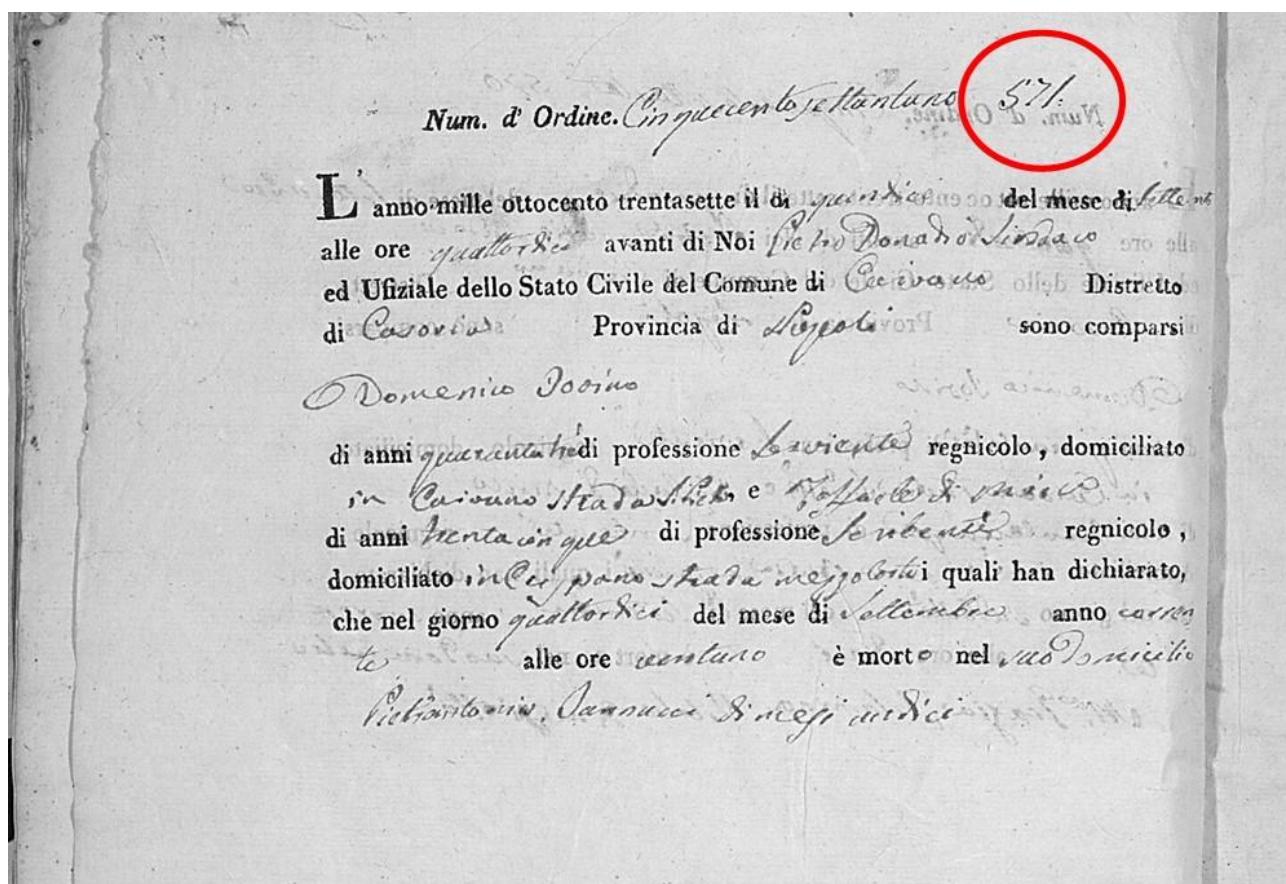 Num. d' Ordine. Cinquecento settantuno 571.
L' anno mille ottocento trentasette il dì quindici del mese di Settemb
alle ore quattordici avanti di Noi Pietro Donadio Sindaco
ed Ufiziale dello Stato Civile del Comune di Caivano Distretto
di Casoria Provincia di Napoli sono comparsi
Domenico Iovino
di anni quarantatre di professione Serviente regnicolo, domiciliato
in Caivano strada e Raffaele di
di anni trentacinque di professione Scribente regnicolo,
domiciliato in strada i quali han dichiarato,
che nel giorno quattordici del mese di Settembre anno corren
te alle ore ventuno è morto nel suo domicilio
Pietrantonio Iannucci di mesi undici